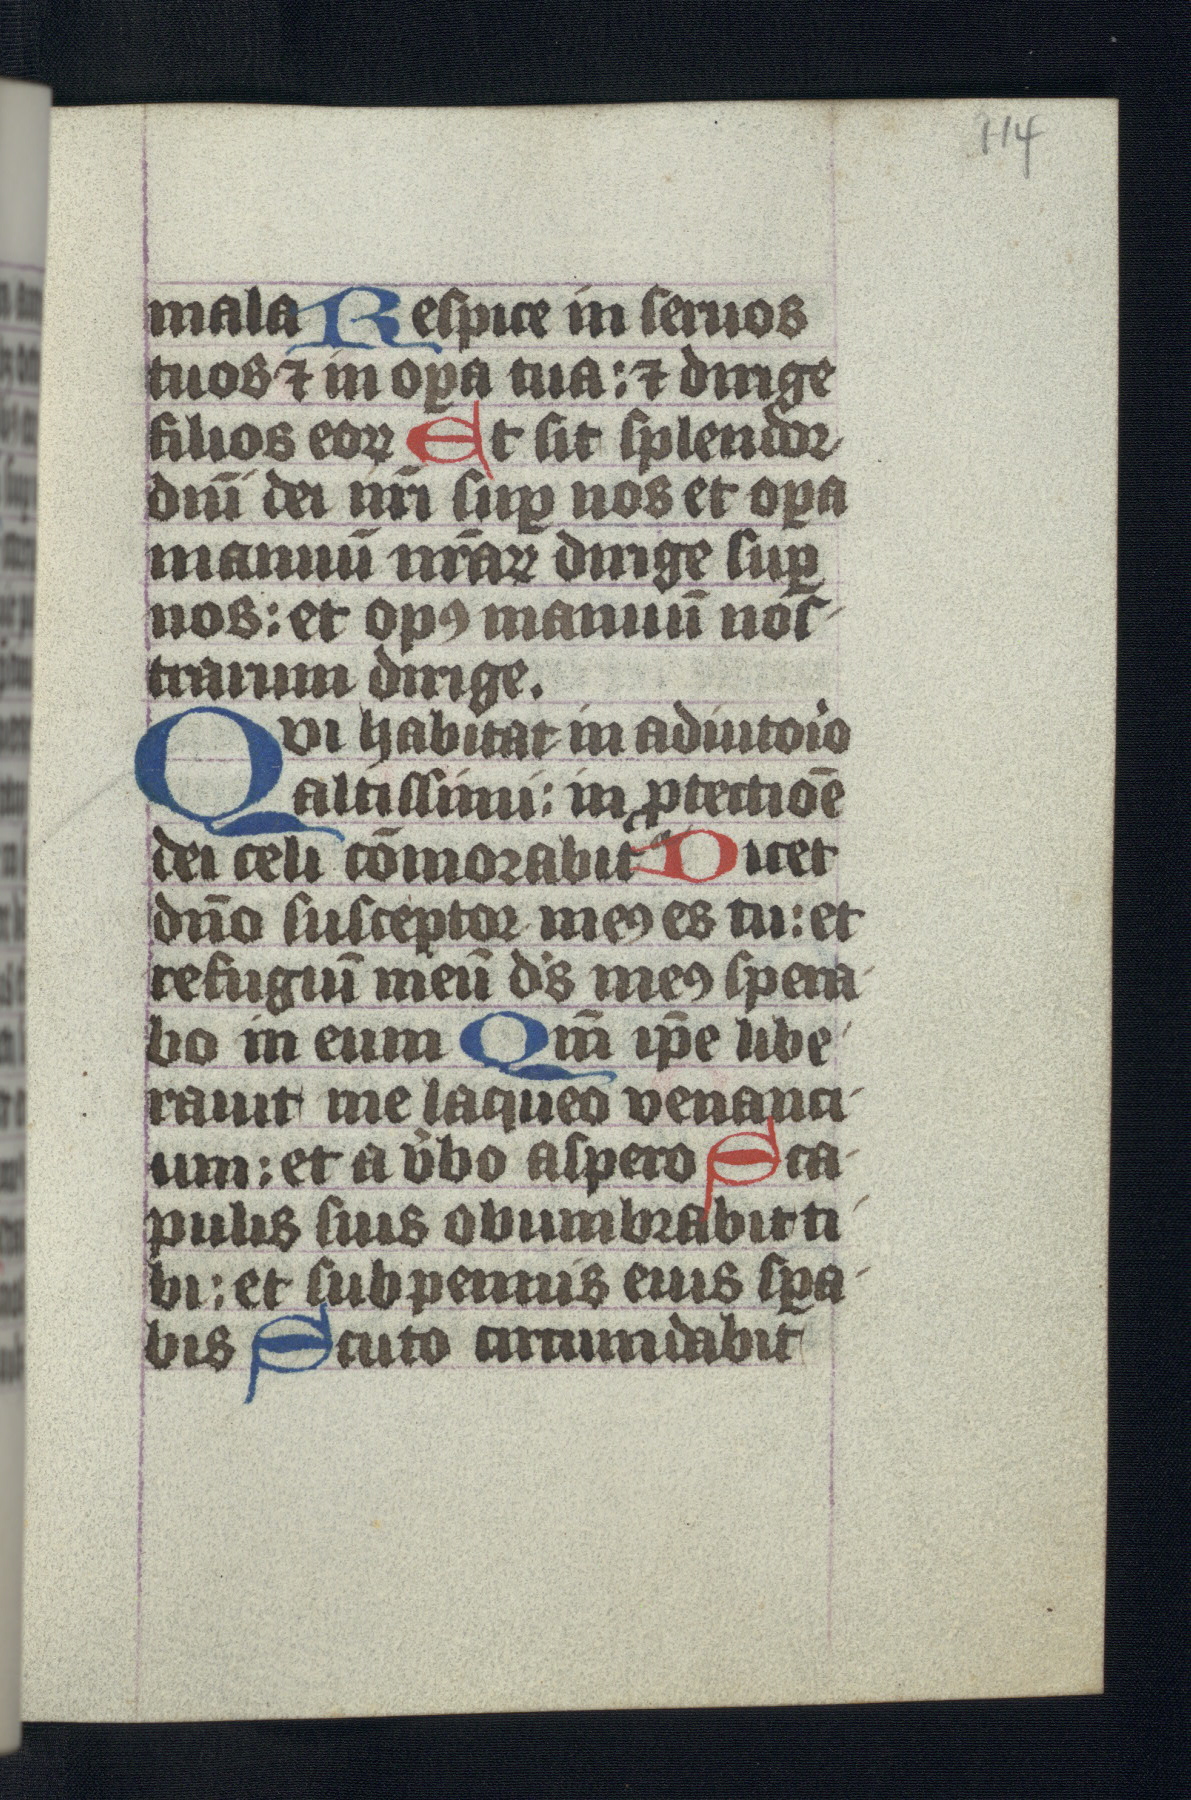 114
mala Respice in seruos
tuos ⁊ in oꝑa tua: ⁊ dirige
filios eoꝝ Et sit splendor
dn̄i dei nr̄i suꝑ nos et oꝑa
manuū nr̄aꝝ dirige suꝑ
nos: et opꝰ manuū nos-
trarum dirige.
Qvi habitat in adiutoıͦo
altissimi: in ꝓtectiōe
dei celi cōmorabitᷣ Dicet
dn̄o susceptor meꝰ es tu: et
refugiū meū ds̄ meꝰ spera-
bo in eum Qm̄ ip̄e libe-
rauit me laqueo venanci-
um: et a v̓bo aspero Sca-
pulis suis obumbrabit ti-
bi: et sub pennis eius sꝑa-
bis Scuto circumdabit